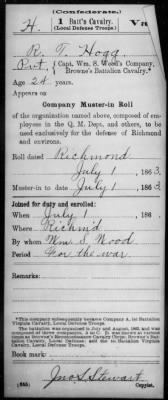 (Confederate.)
H. 1 Batt'n Cavalry, Va
(Local Defense Troops.)
R. T. Hogg
Pvt., { Capt. Wm. S. Wood's Company,
Browne's Battalion Cavalry.
Age 24 years.
Appears on
Company Muster-in Roll
of the organization named above, composed of employees in the Q. M. Dep., and others, to be used exclusively for the defense of Richmond and environs.
Roll dated Richmond
July 1, 1863.
Muster-in to date July 1, 1863.
Joined for duty and enrolled:
When July 1, 186
Where Richm'd
By whom Wm S Wood
Period For the war
Remarks:
Book mark:
(655) Jno S Stewart
Copyist.